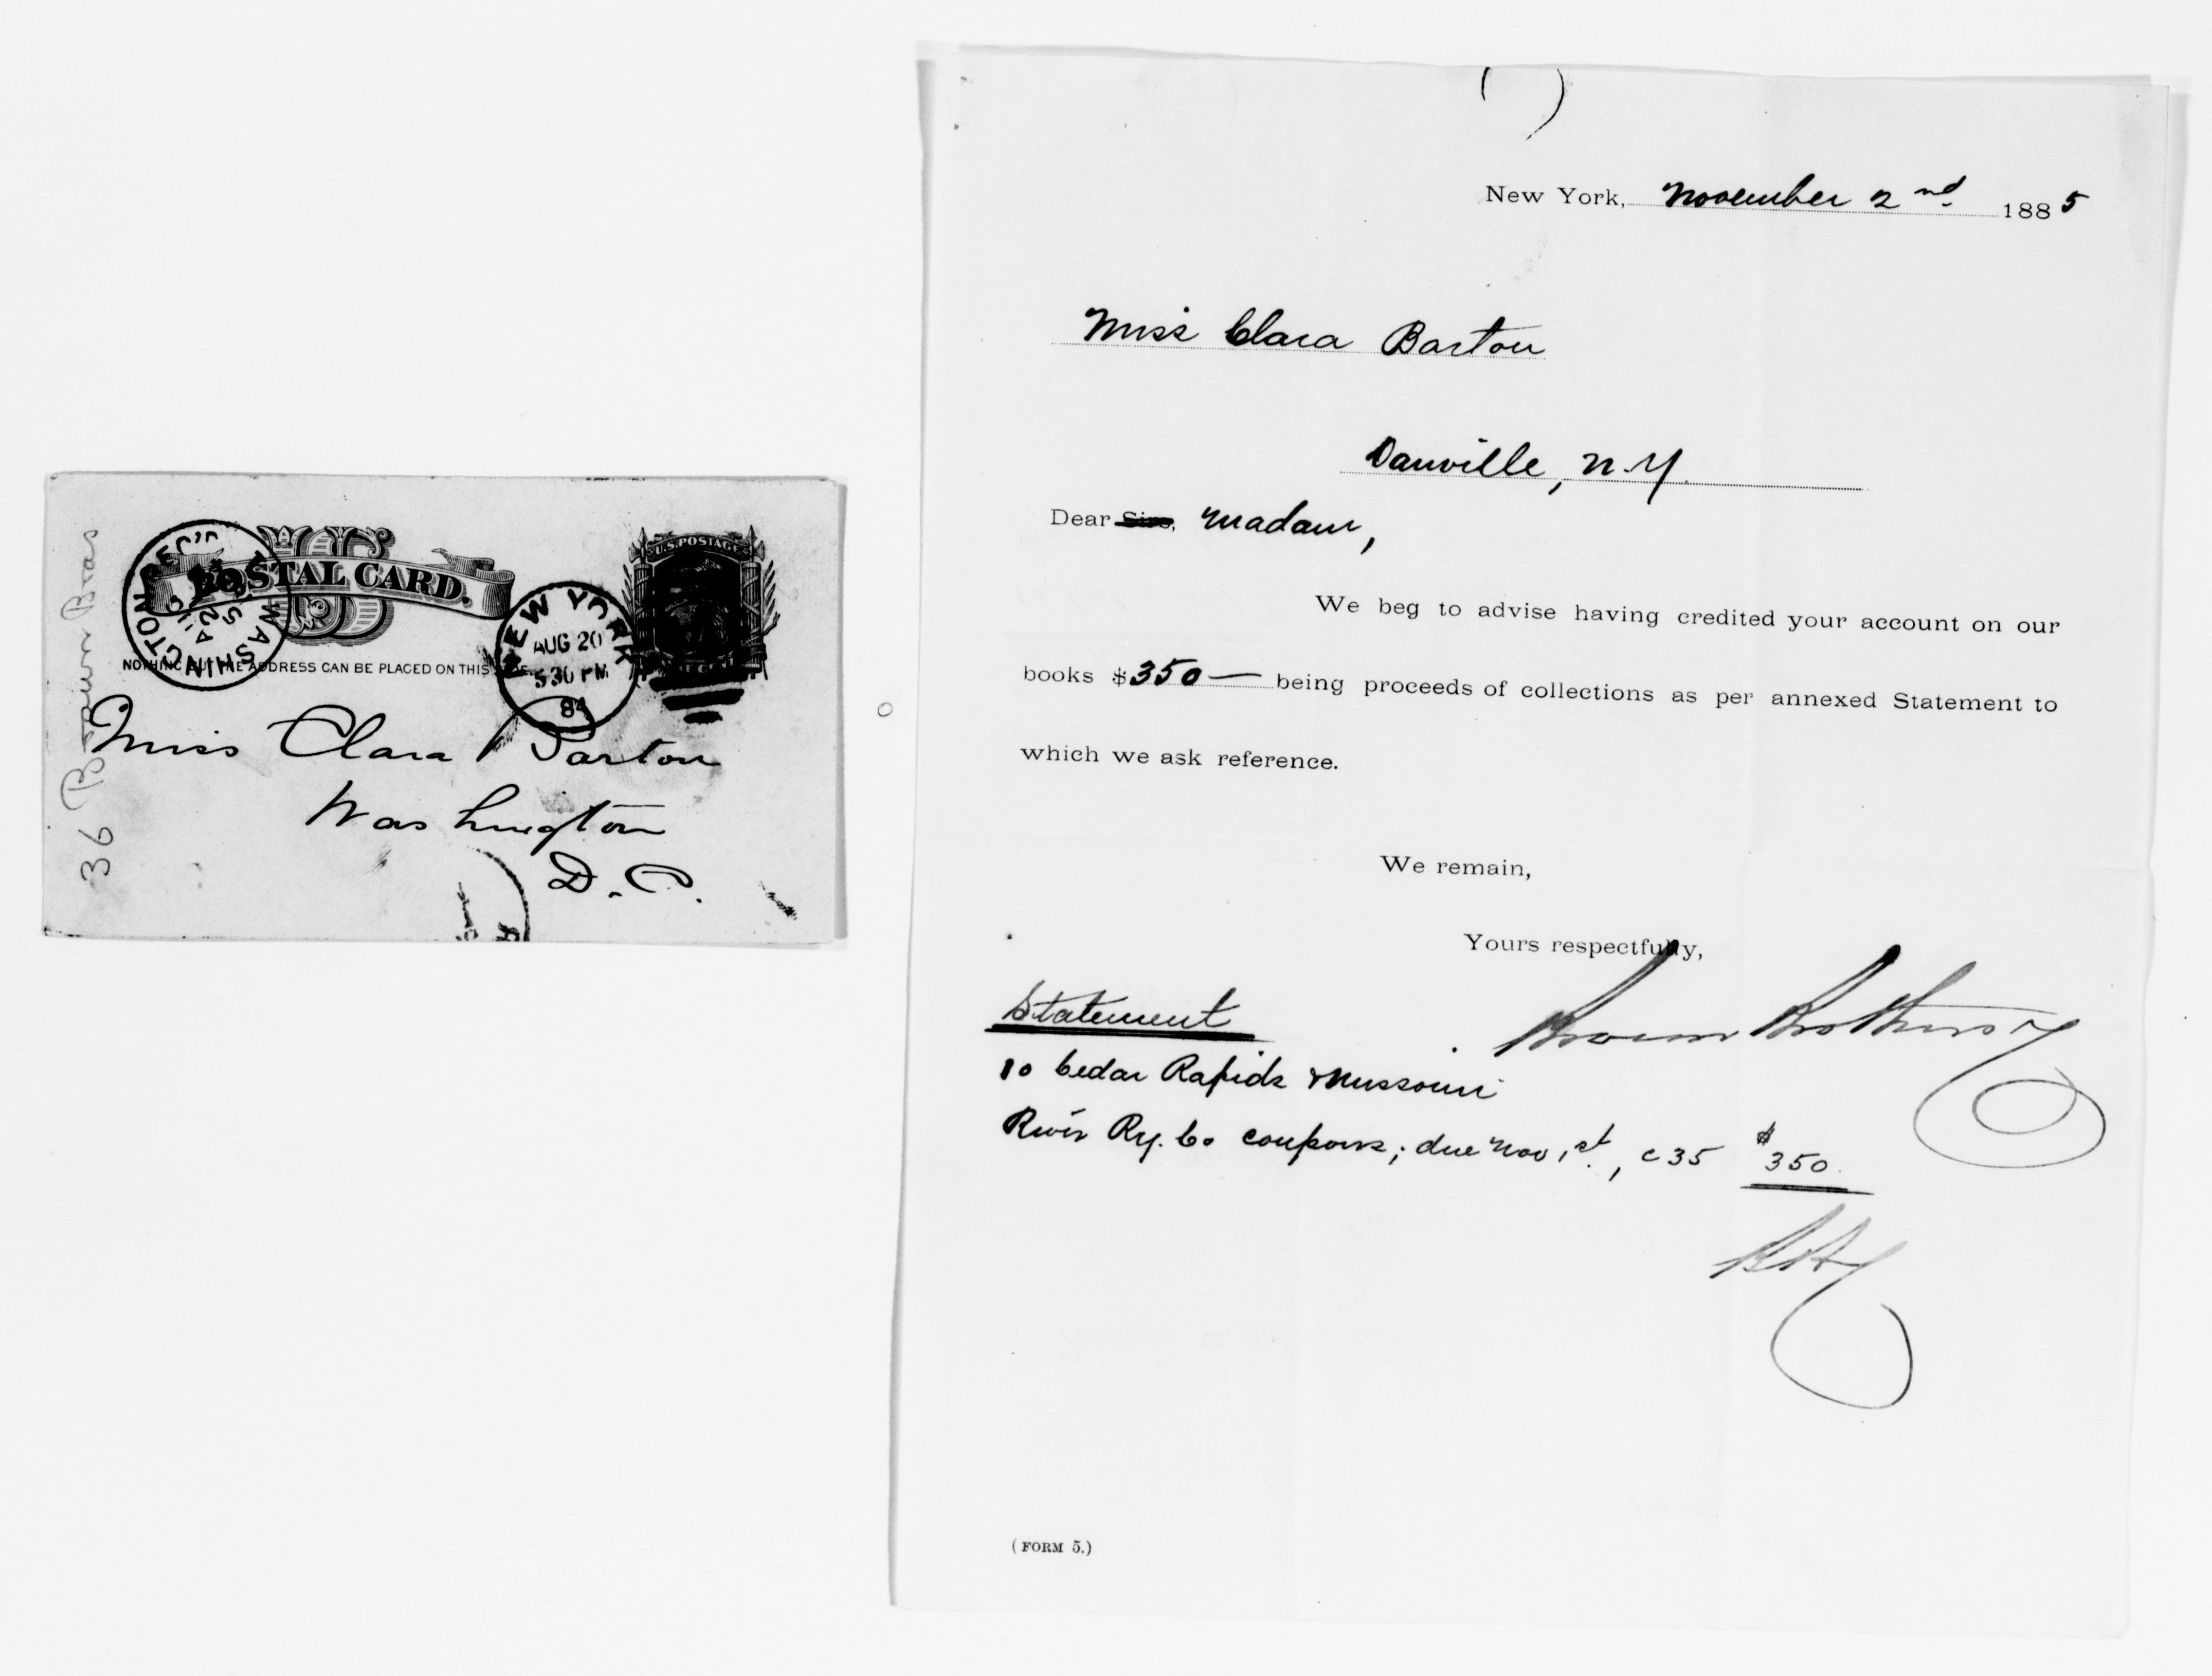 POSTAL CARD.
U.S. POSTAGE
WASHINGTON REC'D
NEW YORK
AUG 20
530 PM
84
NOTHING BUT THE ADDRESS CAN BE PLACED ON THIS
Miss Clara Barton
Washington
D.C.
36 Brown Bros
New York, November 2nd 1885
Miss Clara Barton
Danville, N.Y.
Dear Sirs, Madam,
We beg to advise having credited your account on our
books $350— being proceeds of collections as per annexed Statement to
which we ask reference.
We remain,
Yours respectfully,
Brown Brothers
Statement
10 Cedar Rapids & Missouri
River Ry. Co coupons; due Nov 1st, c 35 $350.
(FORM 5.)